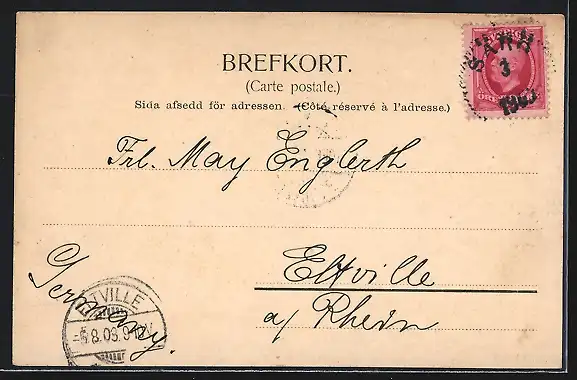 BREFKORT.
(Carte postale.)
Sida afsedd för adressen. (Côté réservé à l'adresse.)
SÄRN
3
1903
Frl. May Englerth
Eltville
a/ Rhein
Germany.